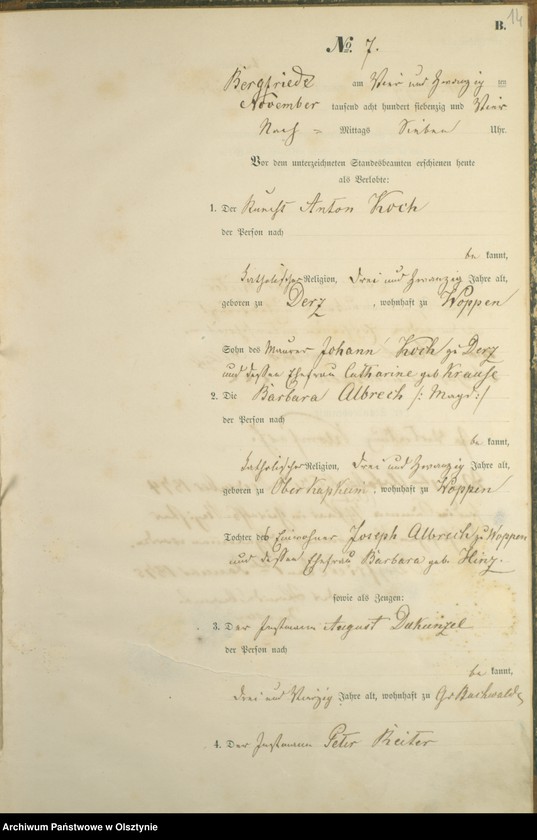 14
B.
No. 7.
Bergfriede am Vier und Zwanzig ten
November tausend acht hundert siebenzig und Vier
Nach = Mittags Sieben Uhr.
Vor dem unterzeichneten Standesbeamten erschienen heute
als Verlobte:
1. Der Knecht Anton Koch
der Person nach
be kannt,
katholischer Religion, drei und zwanzig Jahre alt,
geboren zu Derz, wohnhaft zu Woppen
Sohn des Maurer Johann Koch zu Derz
und dessen Ehefrau Catharine geb Krause
2. Die Barbara Albrech /: Magd :/
der Person nach
be kannt,
katholischer Religion, drei und zwanzig Jahre alt,
geboren zu Ober Kapkeim, wohnhaft zu Woppen
Tochter des Einwohner Joseph Albrech zu Woppen
und dessen Ehefrau Barbara geb. Hinz.
sowie als Zeugen:
3. Der Instmann August
der Person nach
be kannt,
drei und Vierzig Jahre alt, wohnhaft zu Gr Buchwalde
4. Der Instmann Peter Reiter
Archiwum Państwowe w Olsztynie